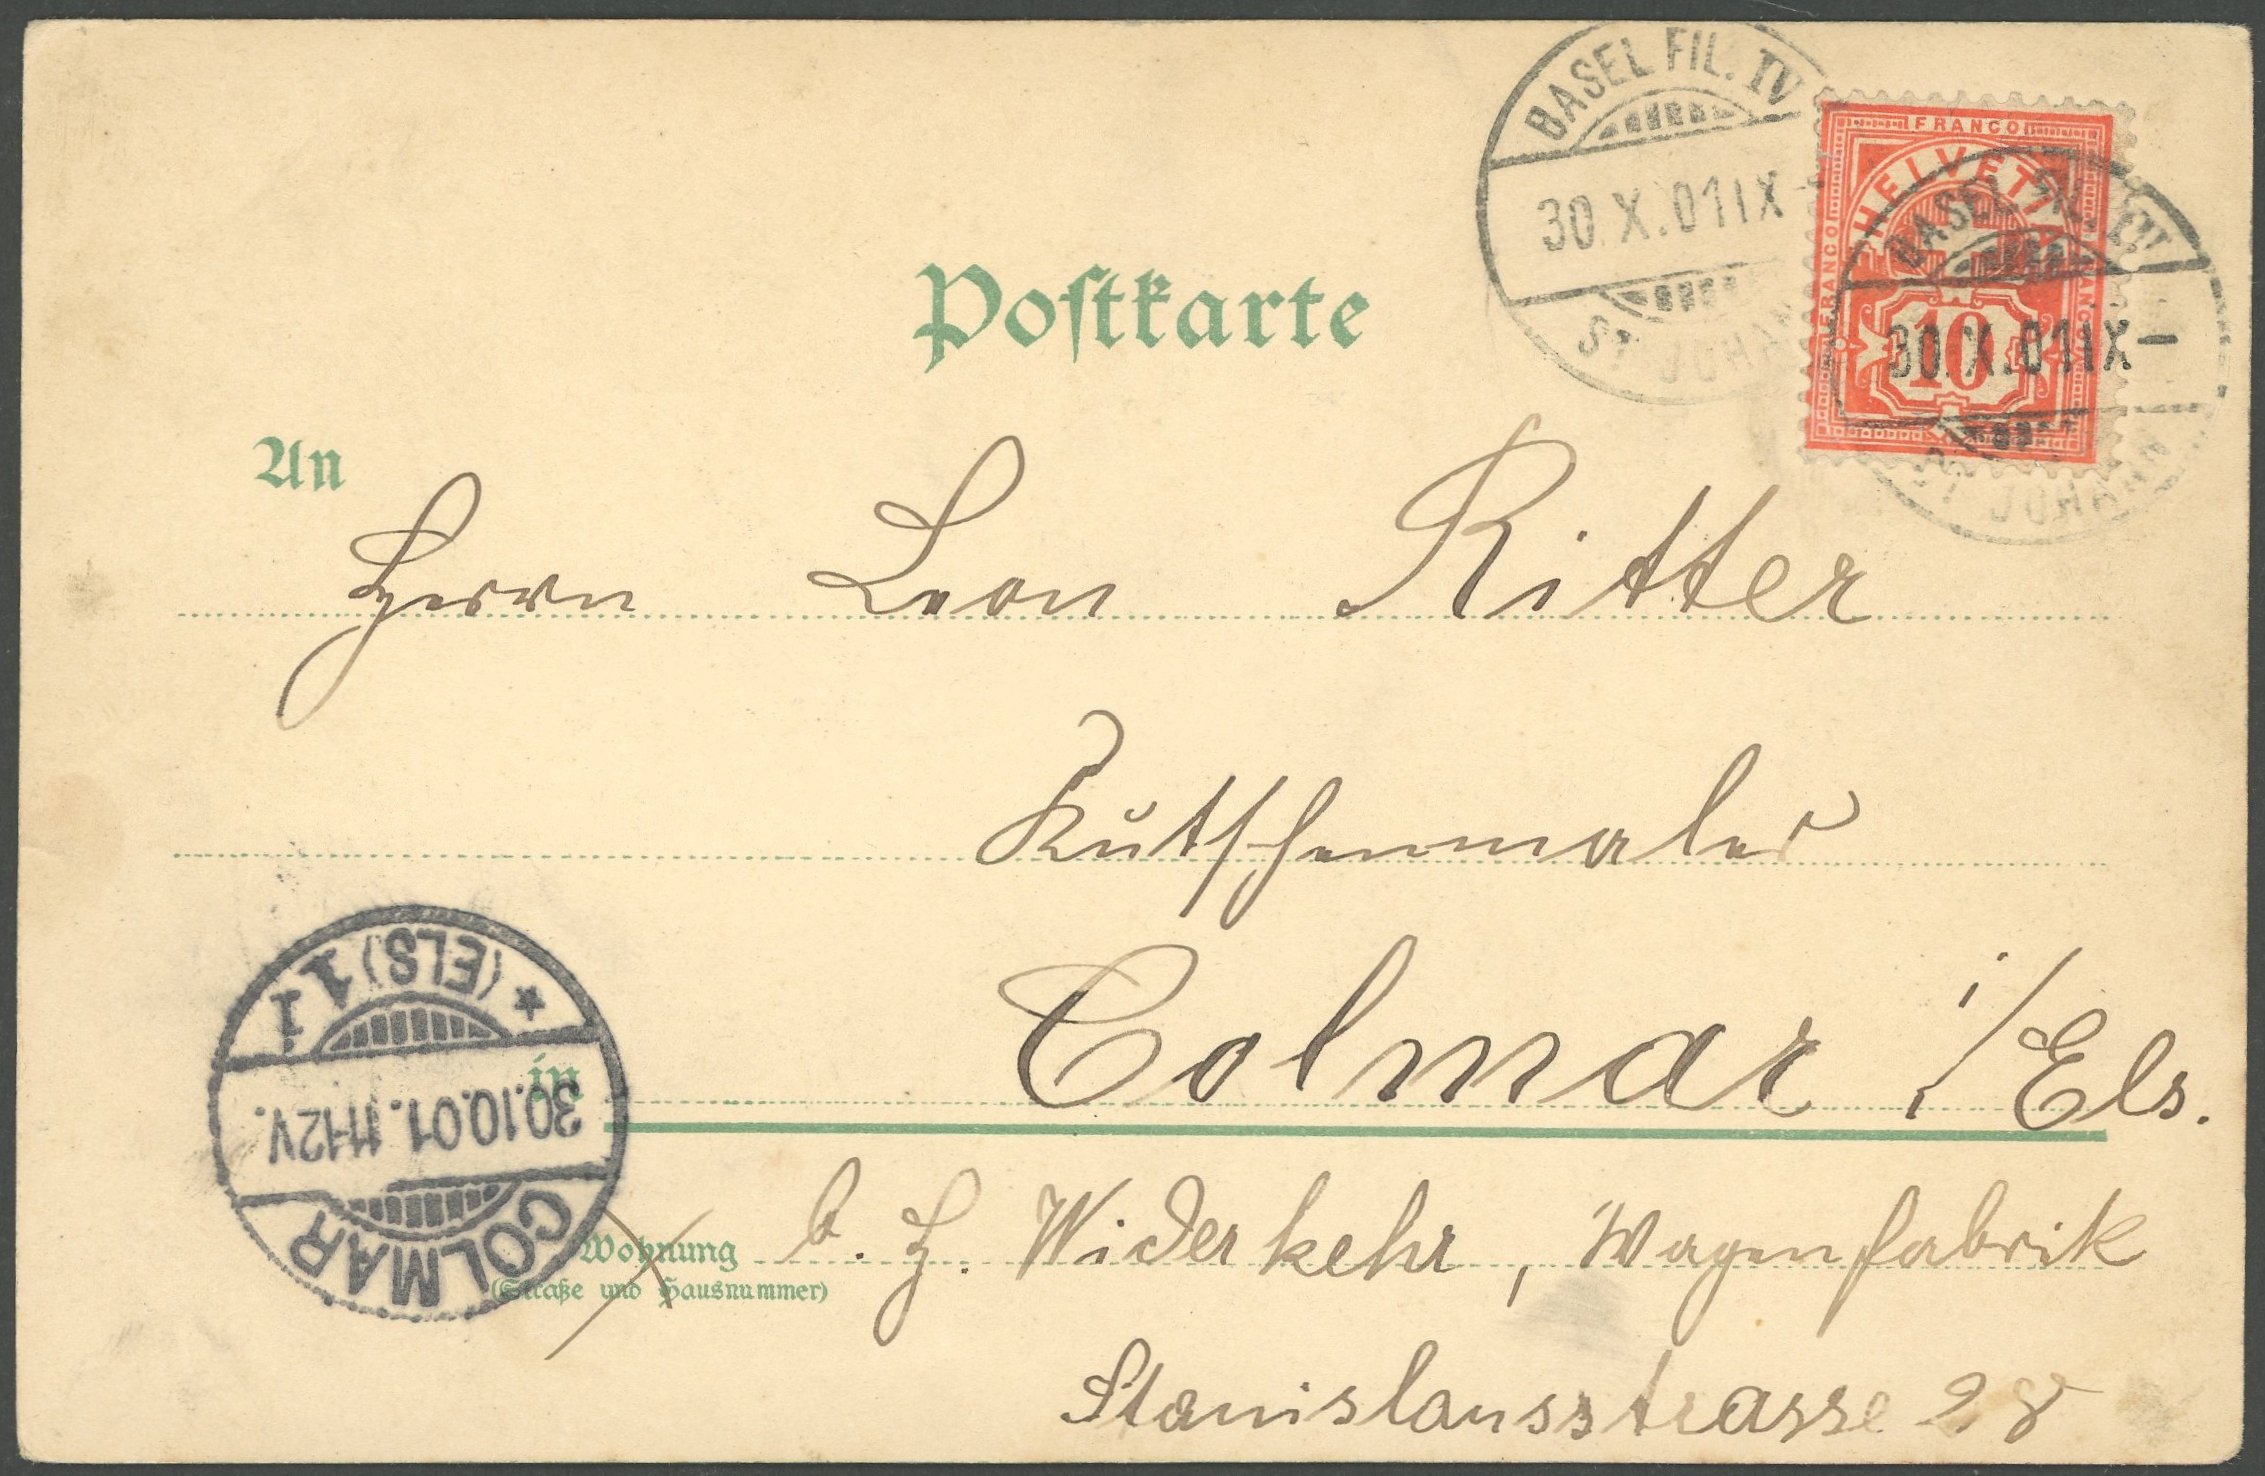 BASEL FIL. IV
30.X.01 IX-
ST. JOHANN
FRANCO
HELVETIA
FRANCO
FRANCO
10
BASEL FIL. IV
30.X.01 IX-
ST. JOHANN
Postkarte
An
Herrn Leon Ritter
Kutschenmaler
in Colmar i/Els.
COLMAR
30.10.01. 11-12V.
(ELS) 1 1
Wohnung b. H. Widerkehr, Wagenfabrik
(Straße und Hausnummer)
Stanislausstrasse 28